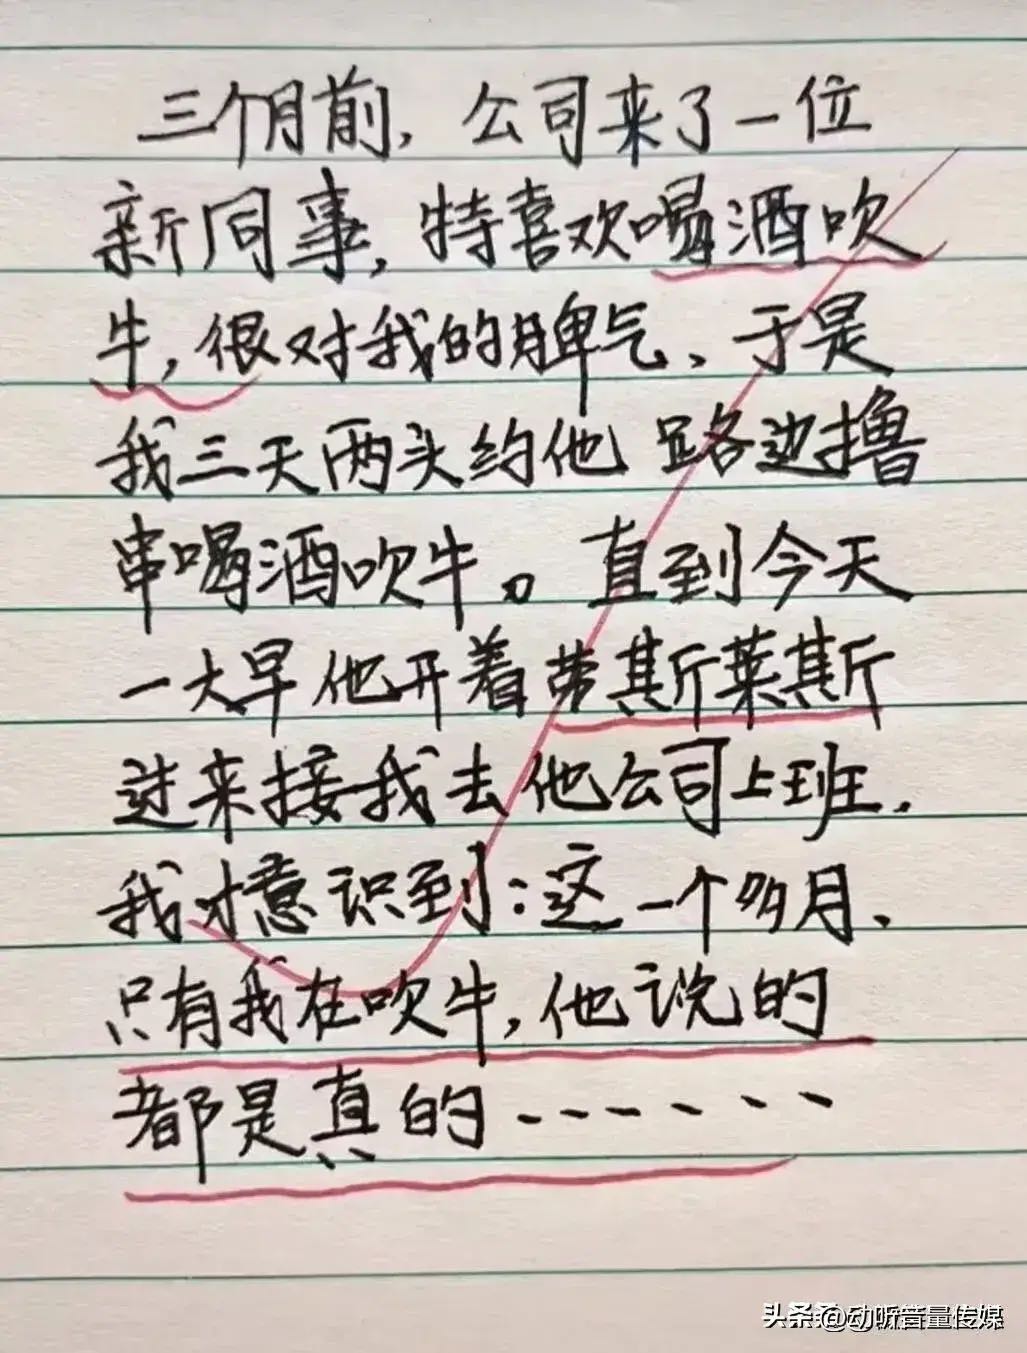 三个月前，公司来了一位
新同事，特喜欢喝酒吹
牛，很对我的脾气、于是
我三天两头约他路边撸
串喝酒吹牛。直到今天
一大早他开着劳斯莱斯
过来接我去他公司上班.
我才意识到：这一个多月、
只有我在吹牛，他说的
都是真的------
头条@动听音量传媒